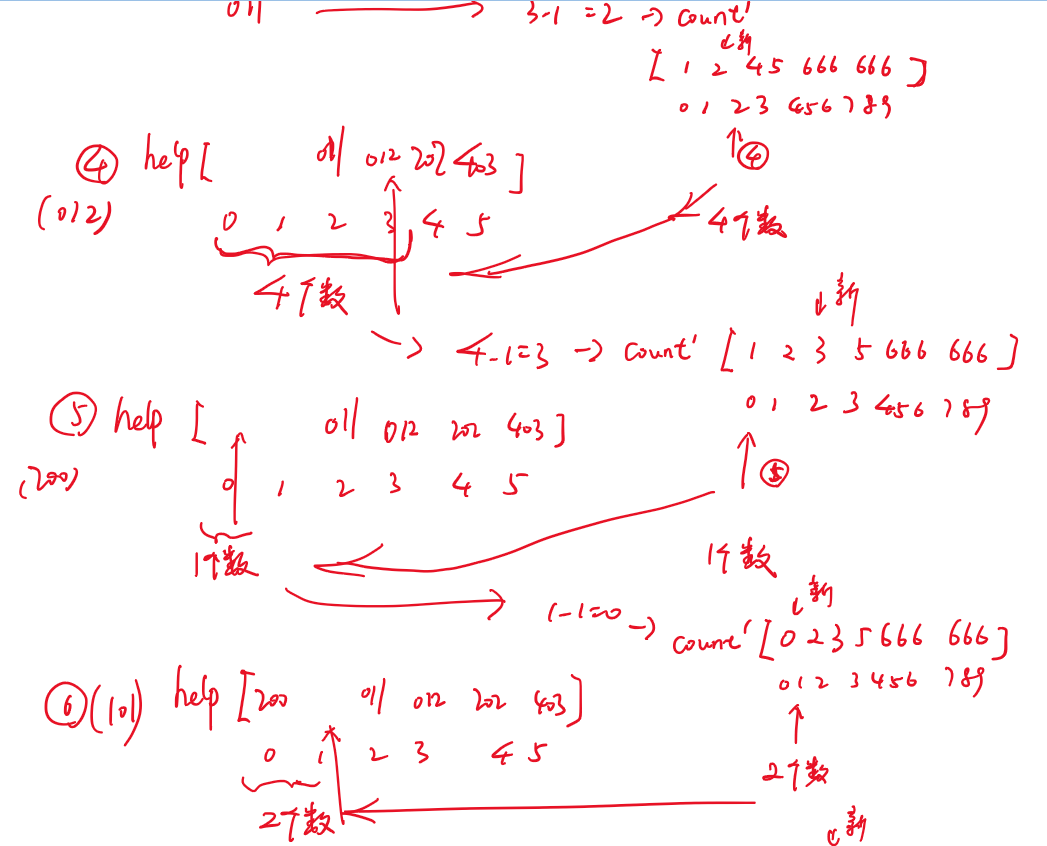 011 → 3-1=2 → count'
↓新
[ 1 2 4 5 6 6 6 6 6 6 ]
0 1 2 3 4 5 6 7 8 9
④ help [ 011 012 202 403 ]
↑④
(012)
0 1 2 3 4 5
4个数
4个数
↓新
→ 4-1=3 → count' [ 1 2 3 5 6 6 6 6 6 6 ]
0 1 2 3 4 5 6 7 8 9
⑤ help [ 011 012 202 403 ]
↑⑤
(200)
0 1 2 3 4 5
1个数
1个数
↓新
1-1=0 → count' [ 0 2 3 5 6 6 6 6 6 6 ]
0 1 2 3 4 5 6 7 8 9
⑥ (101) help [ 200 011 012 202 403 ]
0 1 2 3 4 5
2个数
2个数
↓新